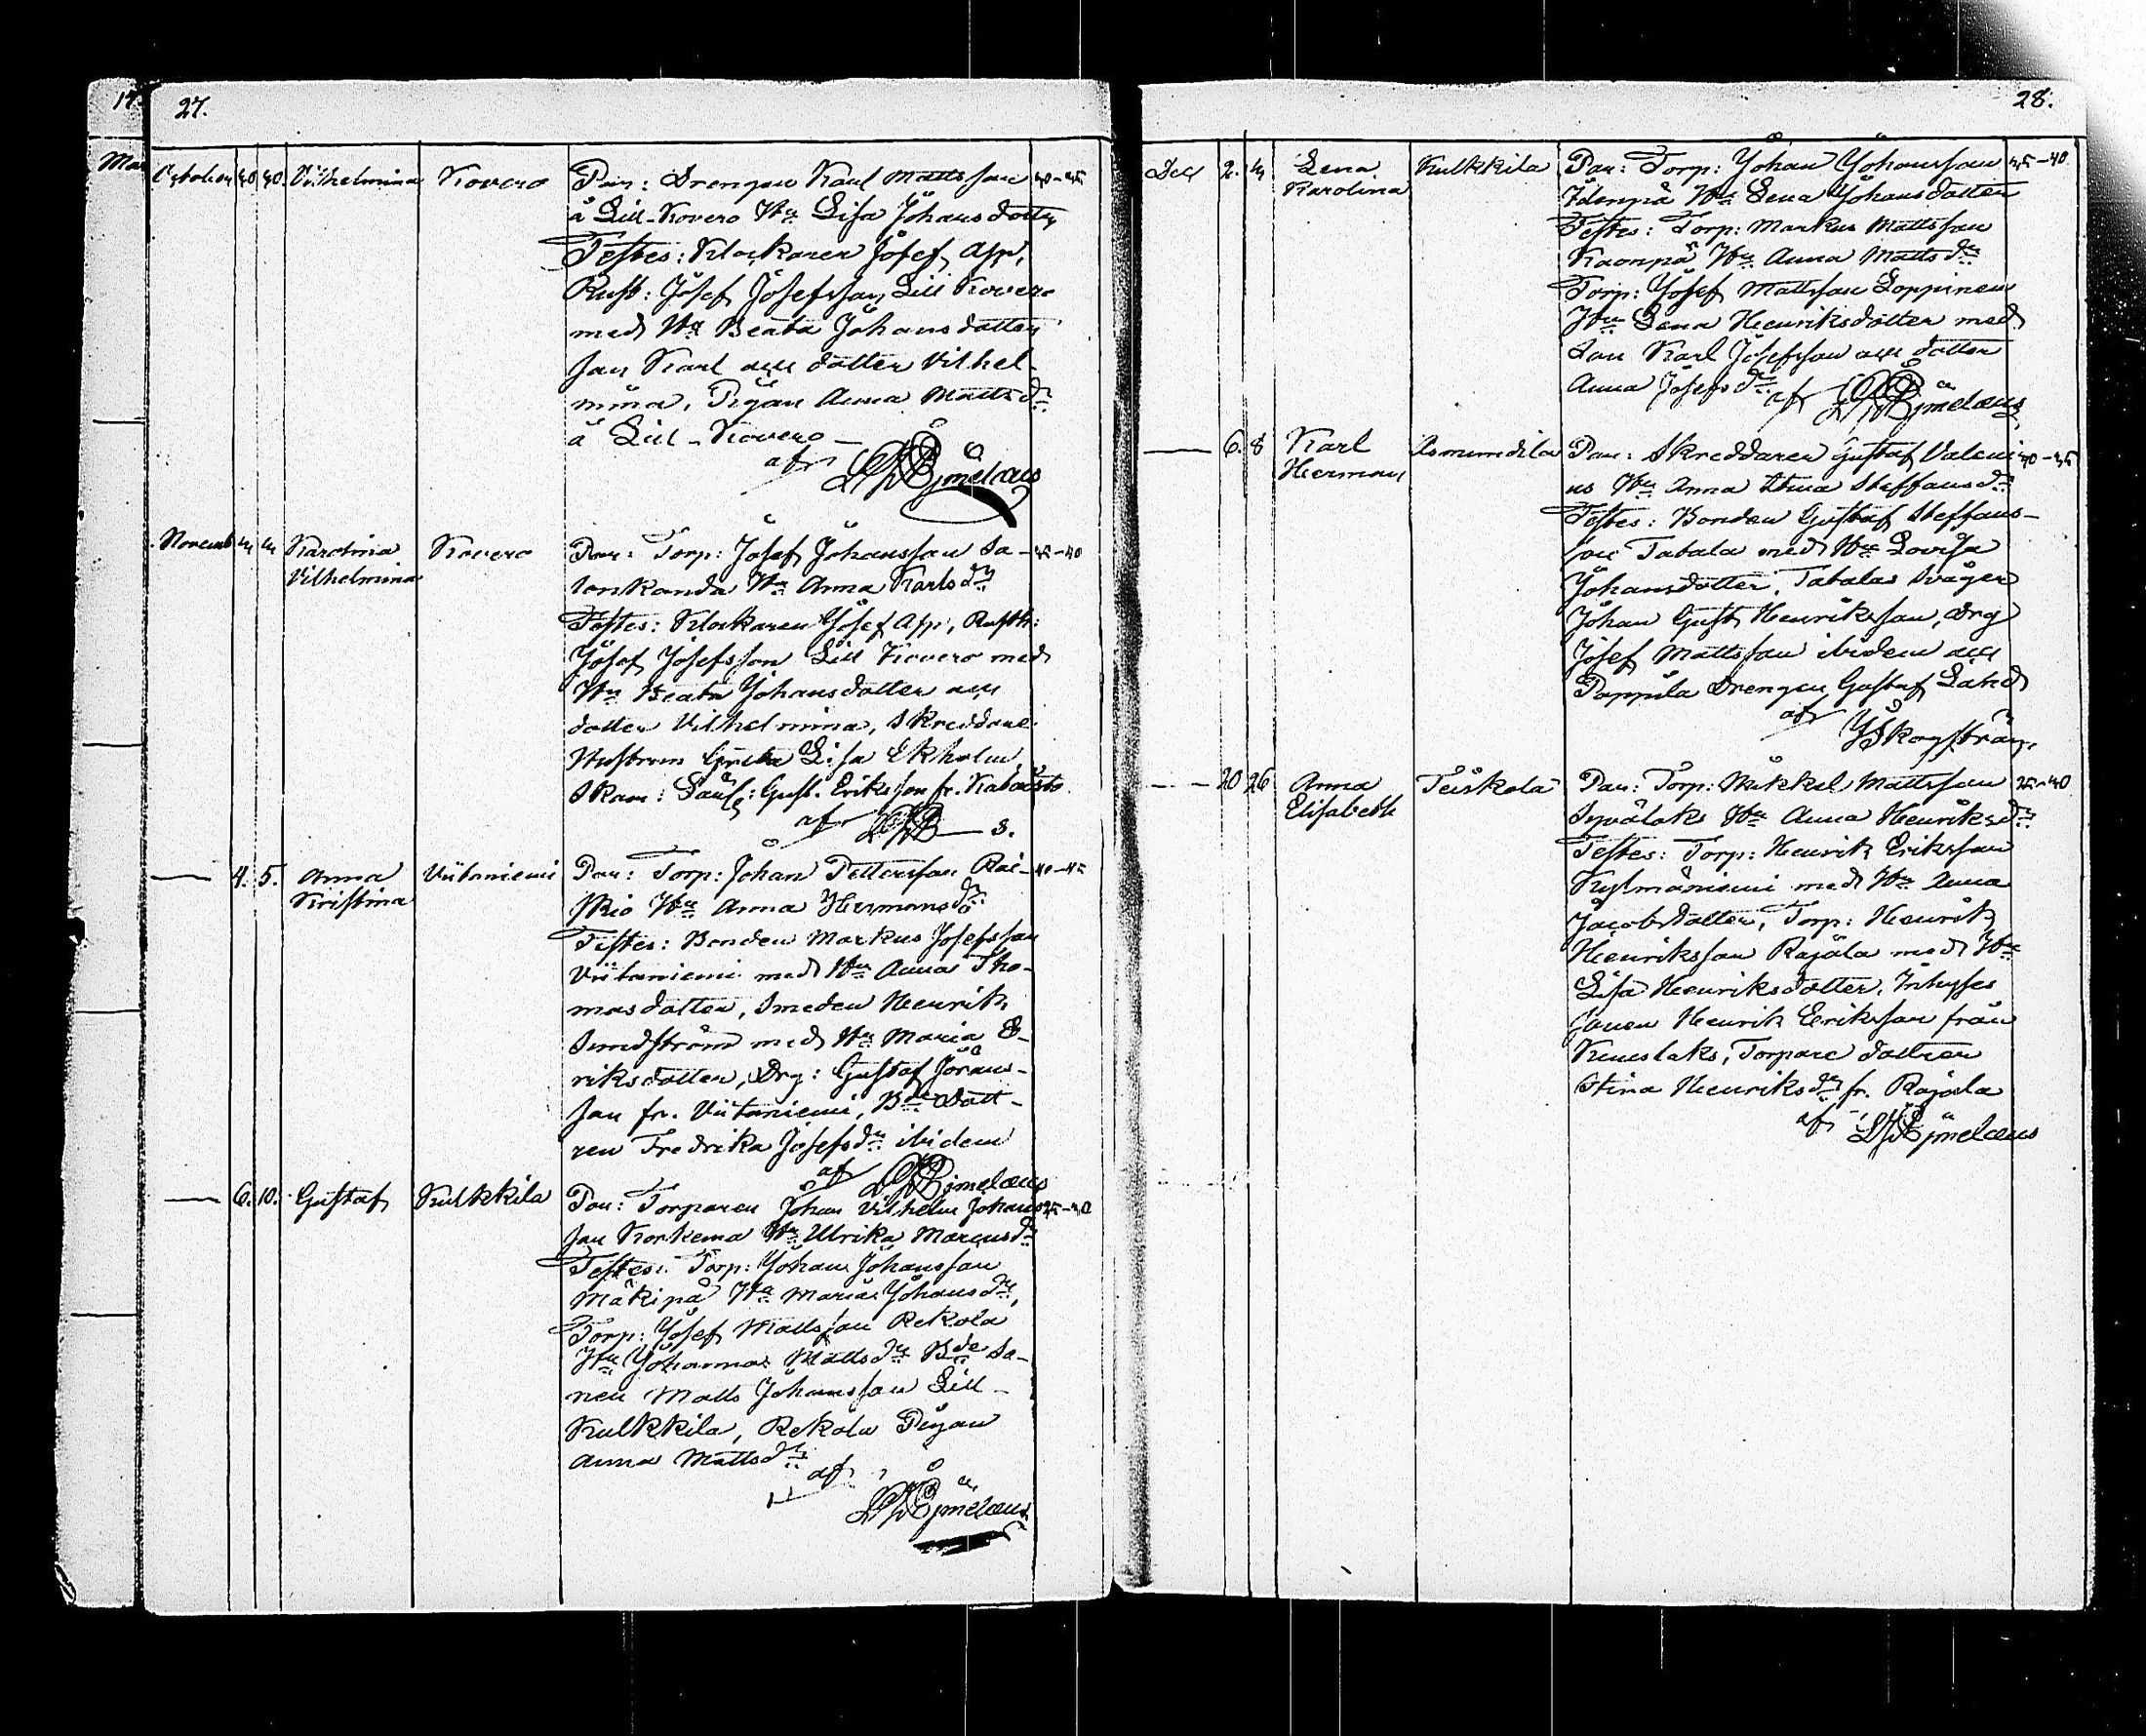 17
Mar
27.
October 20 20. Vilhelmina Kovero Par: Drengen Karl Mattsson 30-35
å Lill-Kovero Hu Lisa Johansdotter
Testes: Klockaren Josef App,
Rust: Josef Josefsson Lill Kovero
med Hu Beata Johansdotter
son Karl och dotter Vilhel-
mina, Pigan Anna Mattsdr
å Lill-Kovero
af Ejmelæus
Novemb Karolina Kovero Par: Torp: Josef Johansson Sa- 35-40
Vilhelmina Hu Anna Karlsdr
Testes: Klockaren Josef App, Rusth:
Josef Josefsson Lill Kovero med
Hu Beata Johansdotter och
dotter Vilhelmina, Skreddare
Hustrun Greta Lisa Ekholm
Gust. Eriksson fr.
af
4. 5. Anna Viitaniemi Par: Torp: Johan Pettersson Rai- 40-45
Kristina skio Hu Anna Hermansdr
Testes: Bonden Markus Josefsson
Viitaniemi med Hu Anna Tho-
masdotter, Smeden Henrik
Sundström med Hu Maria E-
riksdotter, Drg: Gustaf Jörans-
son fr. Viitaniemi, Bde Dott-
ren Fredrika Josefsdr ibidem
af Ejmelæus
6. 10. Gustaf Kulkkila Par: Torparen Johan Vilhelm Johans 25-30
son Korkema Hu Ulrika Marcusdr
Testes: Torp: Johan Johansson
Mäkipä Hu Maria Johansdr,
Torp: Josef Mattsson Rekola
Hu Johanna Mattsdr Bde So-
nen Matts Johansson Lill-
Kulkkila, Rekola Pigan
Anna Mattsdr
af
Ejmelæus
28.
Dec 2. 4 Lena Kulkkila Par: Torp: Johan Johansson 35-40
Karolina Hu Lena Johansdotter
Testes: Torp: Markus Mattsson
Kaonpä Hu Anna Mattsdr
Torp: Josef Mattsson Loppinen
Hu Lena Henriksdotter med
Son Karl Josefsson och dotter
Anna Josefsdr
af Ejmelæus
6. 8 Karl Asmundila Par: Skreddaren Gustaf Valeni 30-35
Herman us Hu Anna Stina Steffansdr
Testes: Bonden Gustaf Steffans-
son Tabala med Hu Lovisa
Johansdotter, Tabalas Svåger
Johan Gust Henriksson, Drg
Josef Mattsson ibidem och
Pappila Drengen Gustaf
af
J Skogström.
20 26 Anna Teiskola Par: Torp: Mikkel Mattsson 35-40
Elisabeth Syvälaks Hu Anna Henriksdr
Testes: Torp: Henrik Eriksson
Kylmäniemi med Hu Anna
Jacobsdotter, Torp: Henrik
Henriksson Rajala med Hu
Lisa Henriksdotter, Inhyses
sonen Henrik Eriksson från
Kuneslaks, Torpare dottren
Stina Henriksdr fr. Rajala
af
Ejmelæus